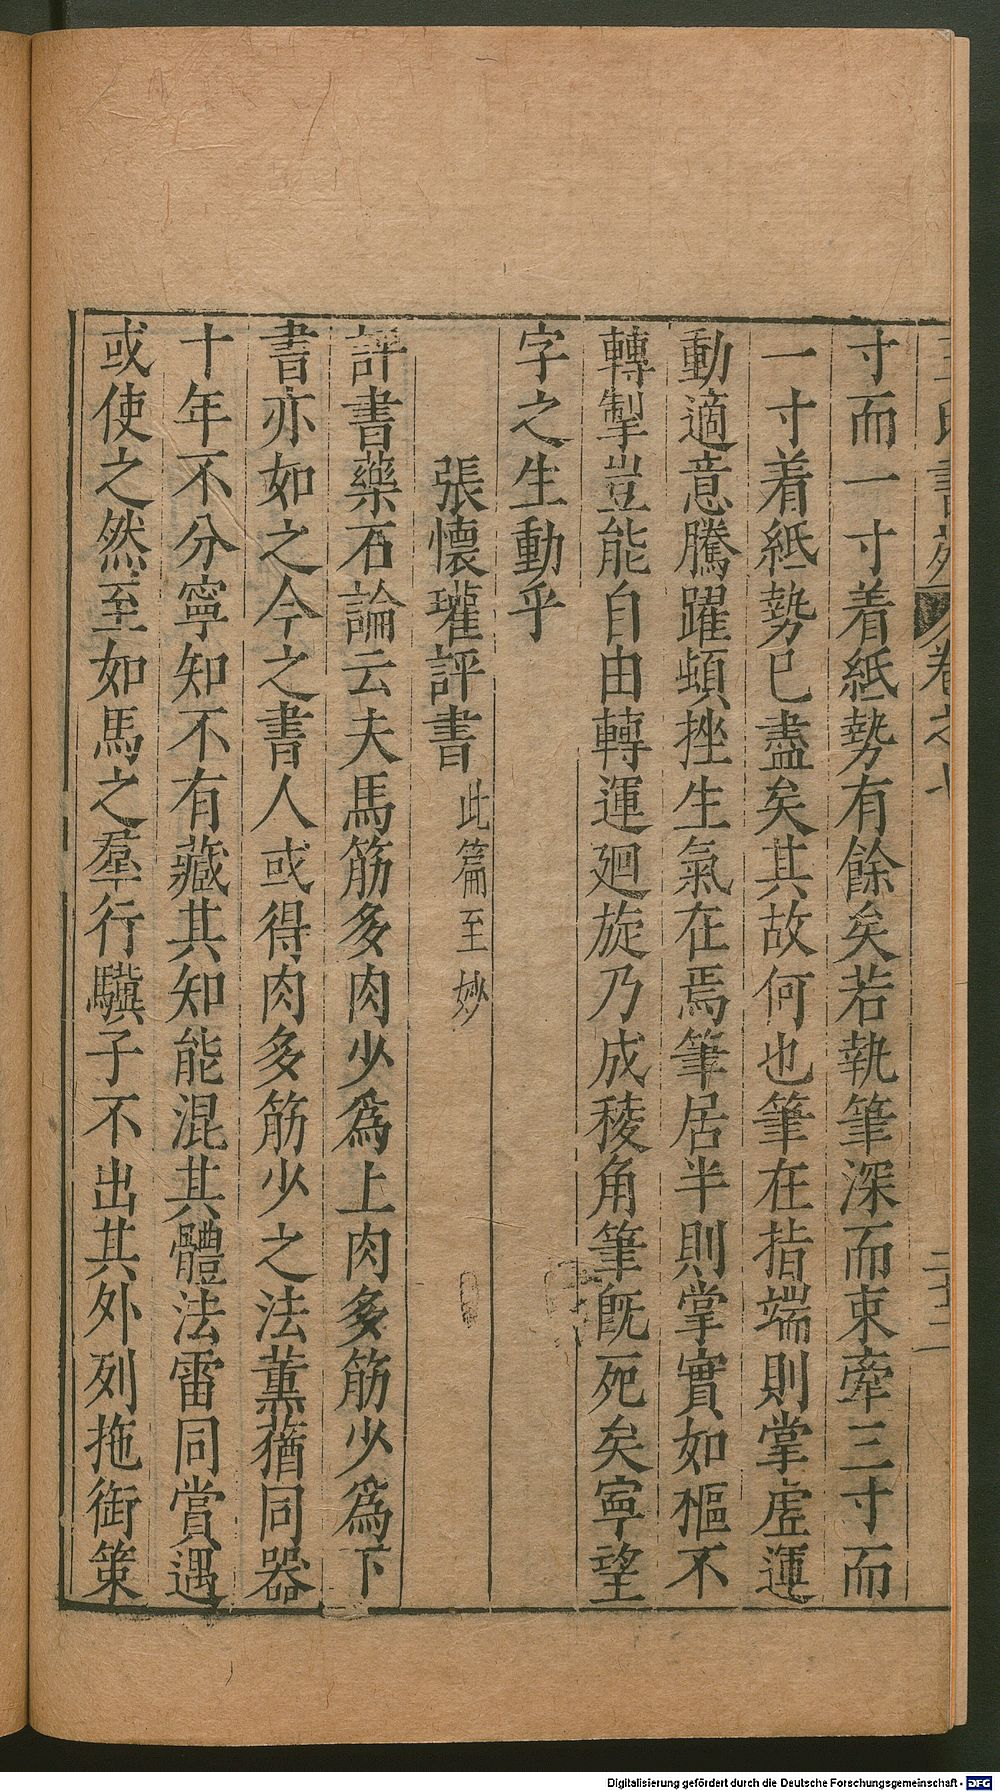 王氏書苑 卷之七 二十二
寸而一寸着紙勢有餘矣若執筆深而束牽三寸而
一寸着紙勢已盡矣其故何也筆在指端則掌虛運
動適意騰躍頓挫生氣在焉筆居半則掌實如樞不
轉掣豈能自由轉運廻旋乃成稜角筆旣死矣寧望
字之生動乎
張懷瓘評書 此篇至妙
評書藥石論云夫馬筋多肉少爲上肉多筋少爲下
書亦如之今之書人或得肉多筋少之法薰蕕同器
十年不分寧知不有藏其知能混其體法雷同賞遇
或使之然至如馬之羣行驥子不出其外列拖銜策
Digitalisierung gefördert durch die Deutsche Forschungsgemeinschaft - DFG